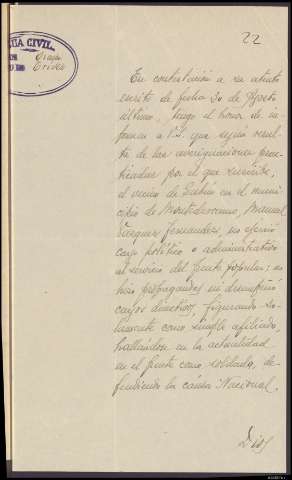 22
DIA CIVIL
En contestación a su atento
escrito de fecha 30 de Agosto
último, tengo el honor de in-
formar a V.S. que según resul-
ta de las averiguaciones prac-
ticadas por el que suscribe,
el vecino de en el muni-
cipio de Montederramo, Manuel
Vazquez Fernandez, no ejerció
cargo político o administrativo
al servicio del frente popular; no
hizo propaganda ni desempeñó
cargos directivos, figurando so-
lamente como simple afiliado,
hallándose en la actualidad
en el frente como soldado, de-
fendiendo la causa Nacional.
Dios